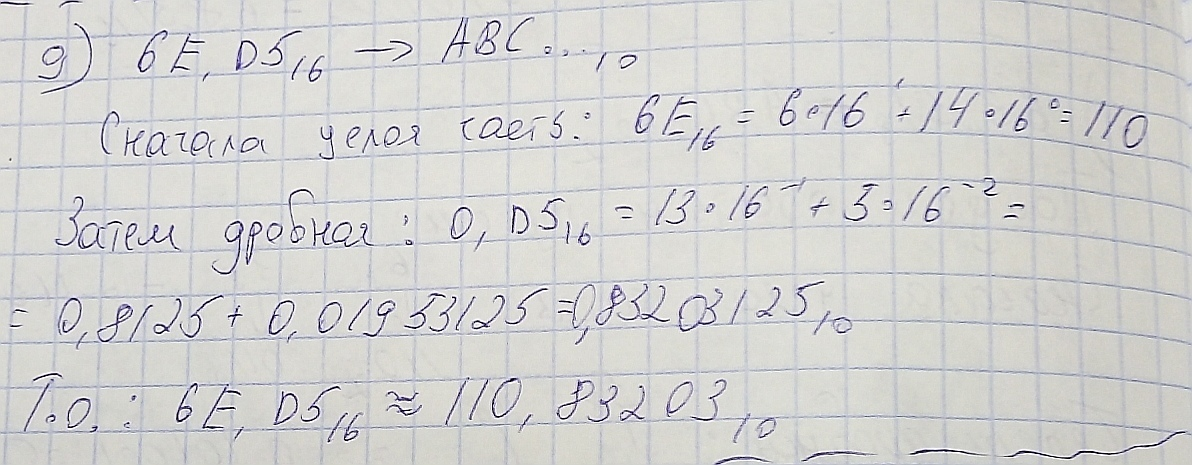 д) 6E,D5₁₆ → ABC...₁₀
Сначала целая часть: 6E₁₆ = 6·16¹+14·16⁰=110
Затем дробная: 0,D5₁₆ = 13·16⁻¹+5·16⁻²=
= 0,8125+0,01953125=0,83203125₁₀
Т.о.: 6E,D5₁₆ ≈ 110,83203₁₀